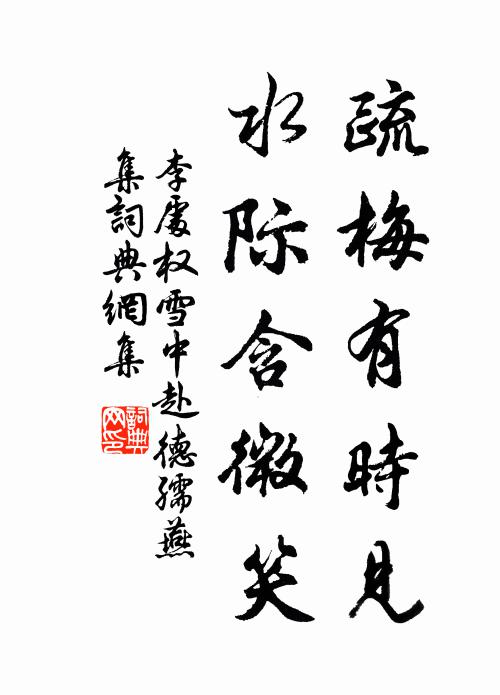 疏梅有時見
水际含微笑
李處权雪中赴德孺燕
集詞典網集
詞典
网印